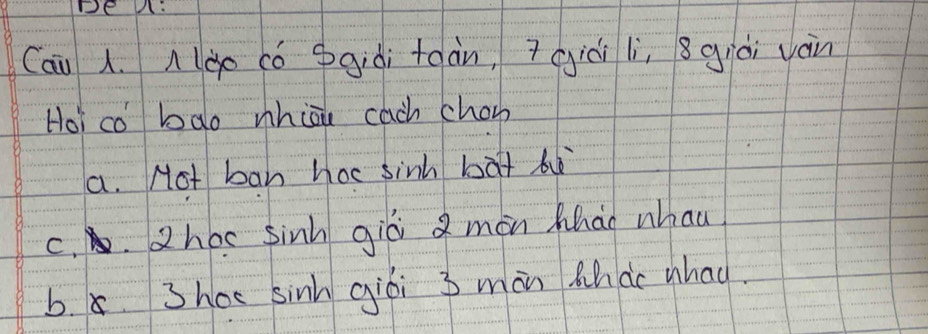 Câu 1. 1 lớp có 5 giỏi toán, 7 giỏi lí, 8 giỏi văn
Hỏi có bao nhiêu cách chọn
a. Một bạn học sinh bất kì
c. 2 học sinh giỏi 2 môn khác nhau.
b. 3 học sinh giỏi 3 môn khác nhau.